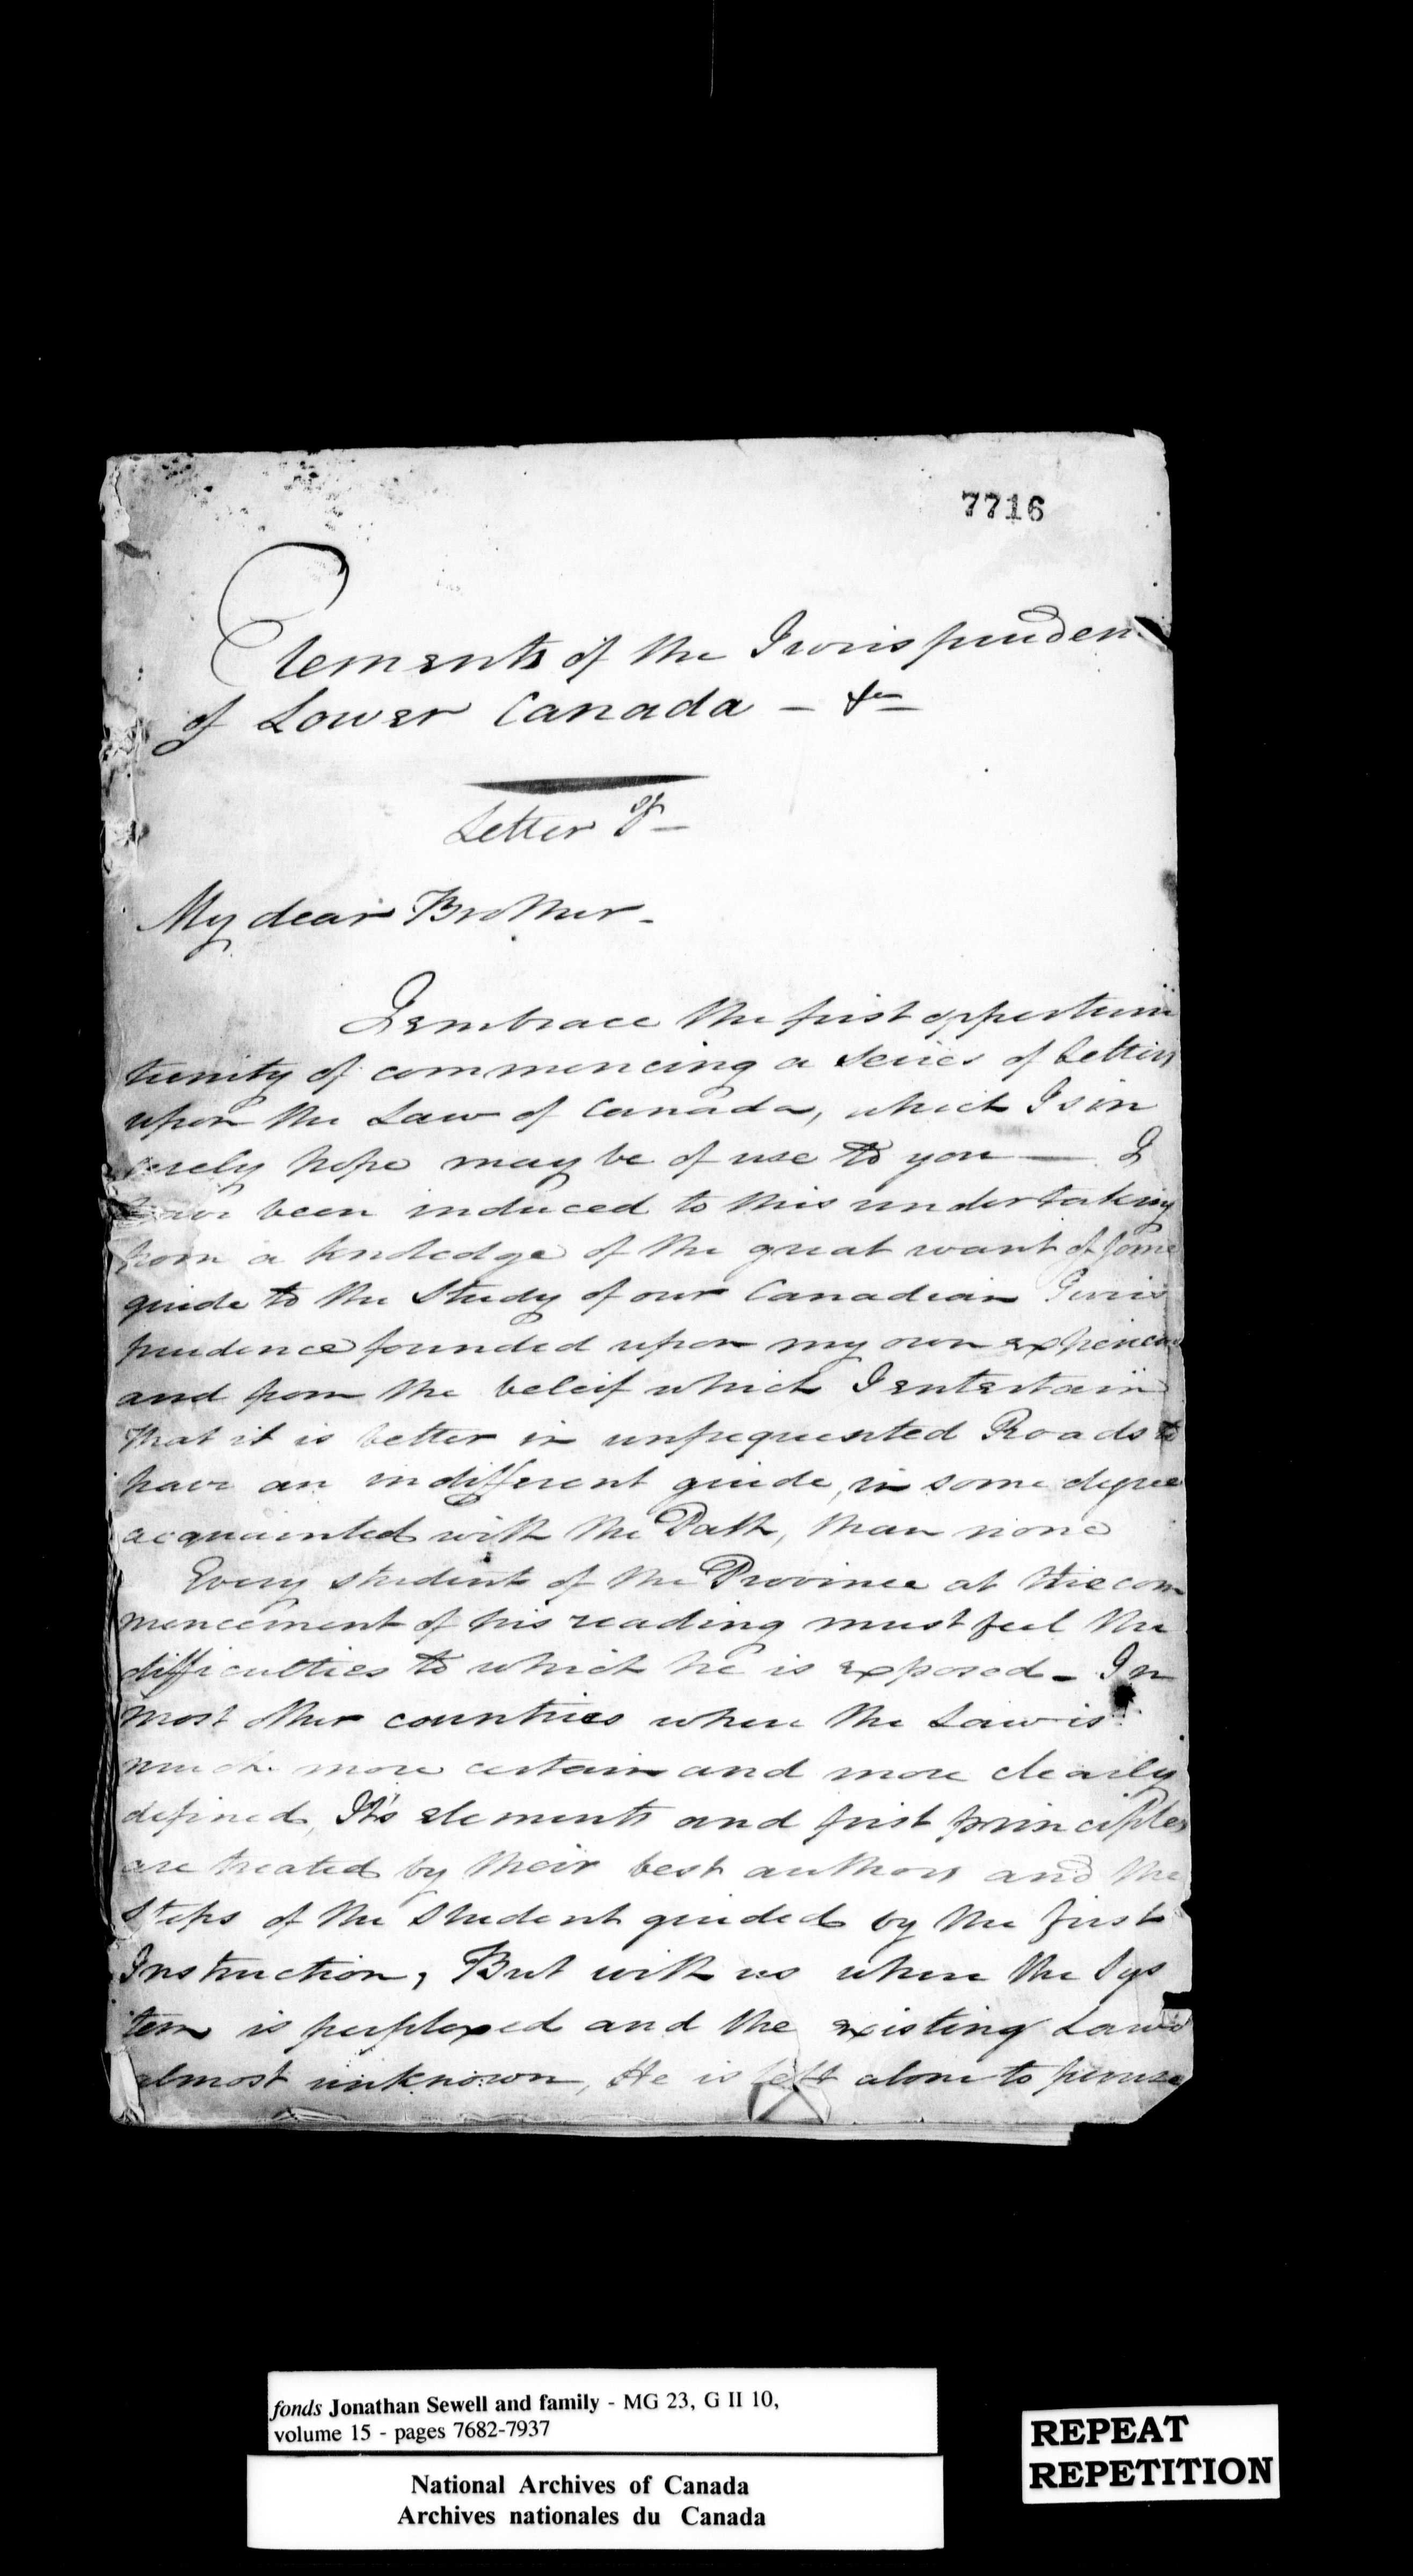 7716
Elements of the Jurispruden
of Lower Canada - &c
Letter 1st
My dear Brother -
I embrace the first opportuni
tunity of commencing a series of Letters
upon the Law of Canada, which I sin
cerely hope may be of use to you — I
have been induced to this undertaking
from a knoledge of the great want of some
guide to the Study of our Canadian Juris
prudence founded upon my own experience
and from the beleif which I entertain
that it is better in unfrequented Roads to
have an indifferent guide, in some degree
acquainted with the Path, than none
Every student of the Province at the com
mencement of his reading must feel the
difficulties to which he is exposed - In
most other countries where the Law is
much more certain and more clearly
defined, It's elements and first principles
are treated by their best authors and the
steps of the student guided by the first
Instruction, But with us where the Sys
tem is perplexed and the existing Laws
almost unknown, He is left alone to peruse
fonds Jonathan Sewell and family - MG 23, G II 10,
volume 15 - pages 7682-7937
National Archives of Canada
Archives nationales du Canada
REPEAT
REPETITION